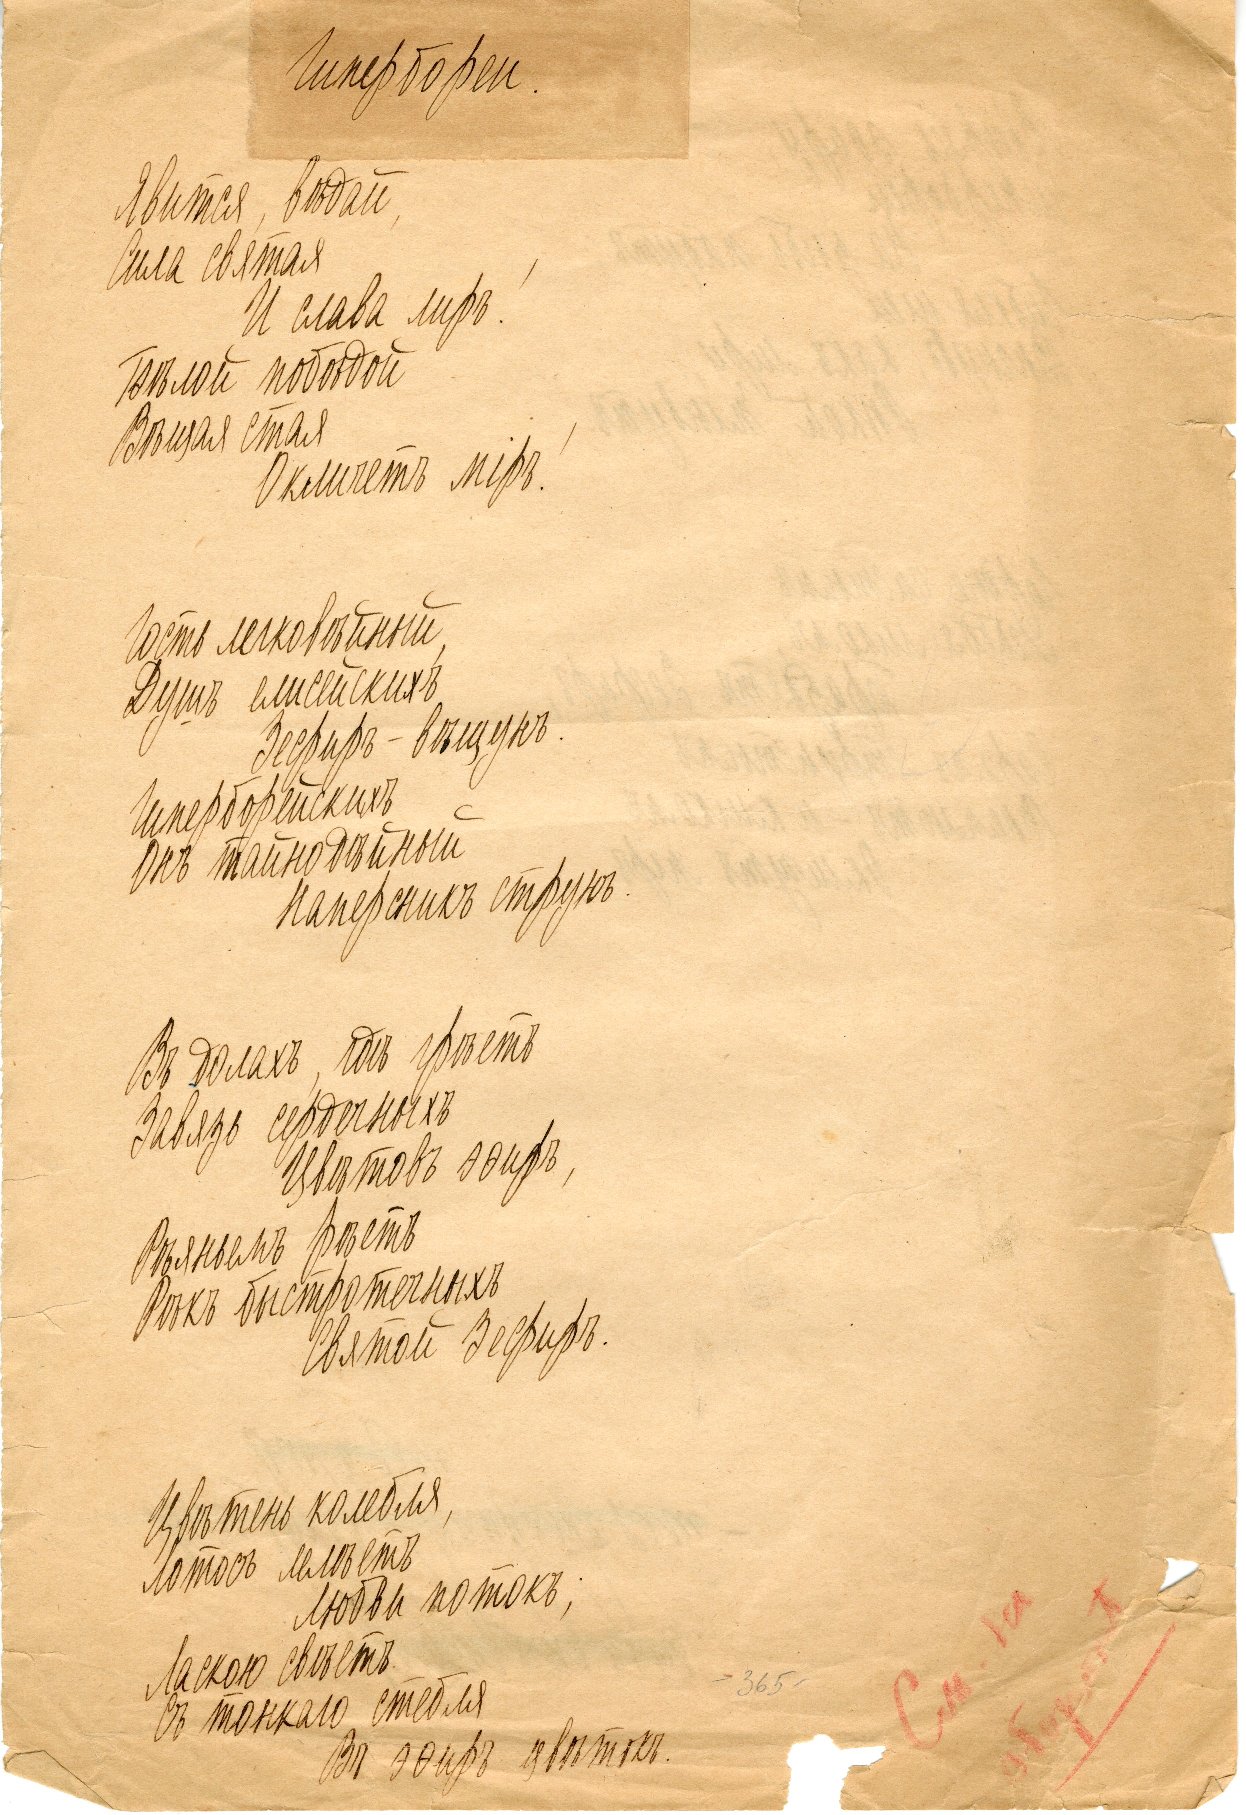 Гипербореи.
Явится, вѣдай,
Сила святая
И слава лиръ!
Бѣлой побѣдой
Вѣщая стая
Окличетъ міръ!
Гость легковѣйный,
Душъ елисейскихъ
Зефиръ – вѣщунъ.
Гиперборейскихъ
Онъ тайнодѣйный
Наперсникъ струнъ.
Въ долахъ, гдѣ грѣетъ
Завязь сердечныхъ
Цвѣтовъ эѳиръ,
Рѣяньемъ рѣетъ
Рѣкъ быстротечныхъ
Святой Зефиръ.
Цвѣтень колебля,
Лотосъ лелѣетъ
Любви потокъ;
Ласкою свѣетъ
Съ тонкаго стебля
Въ эѳиръ цвѣтокъ.
-365-
См. на
обороте